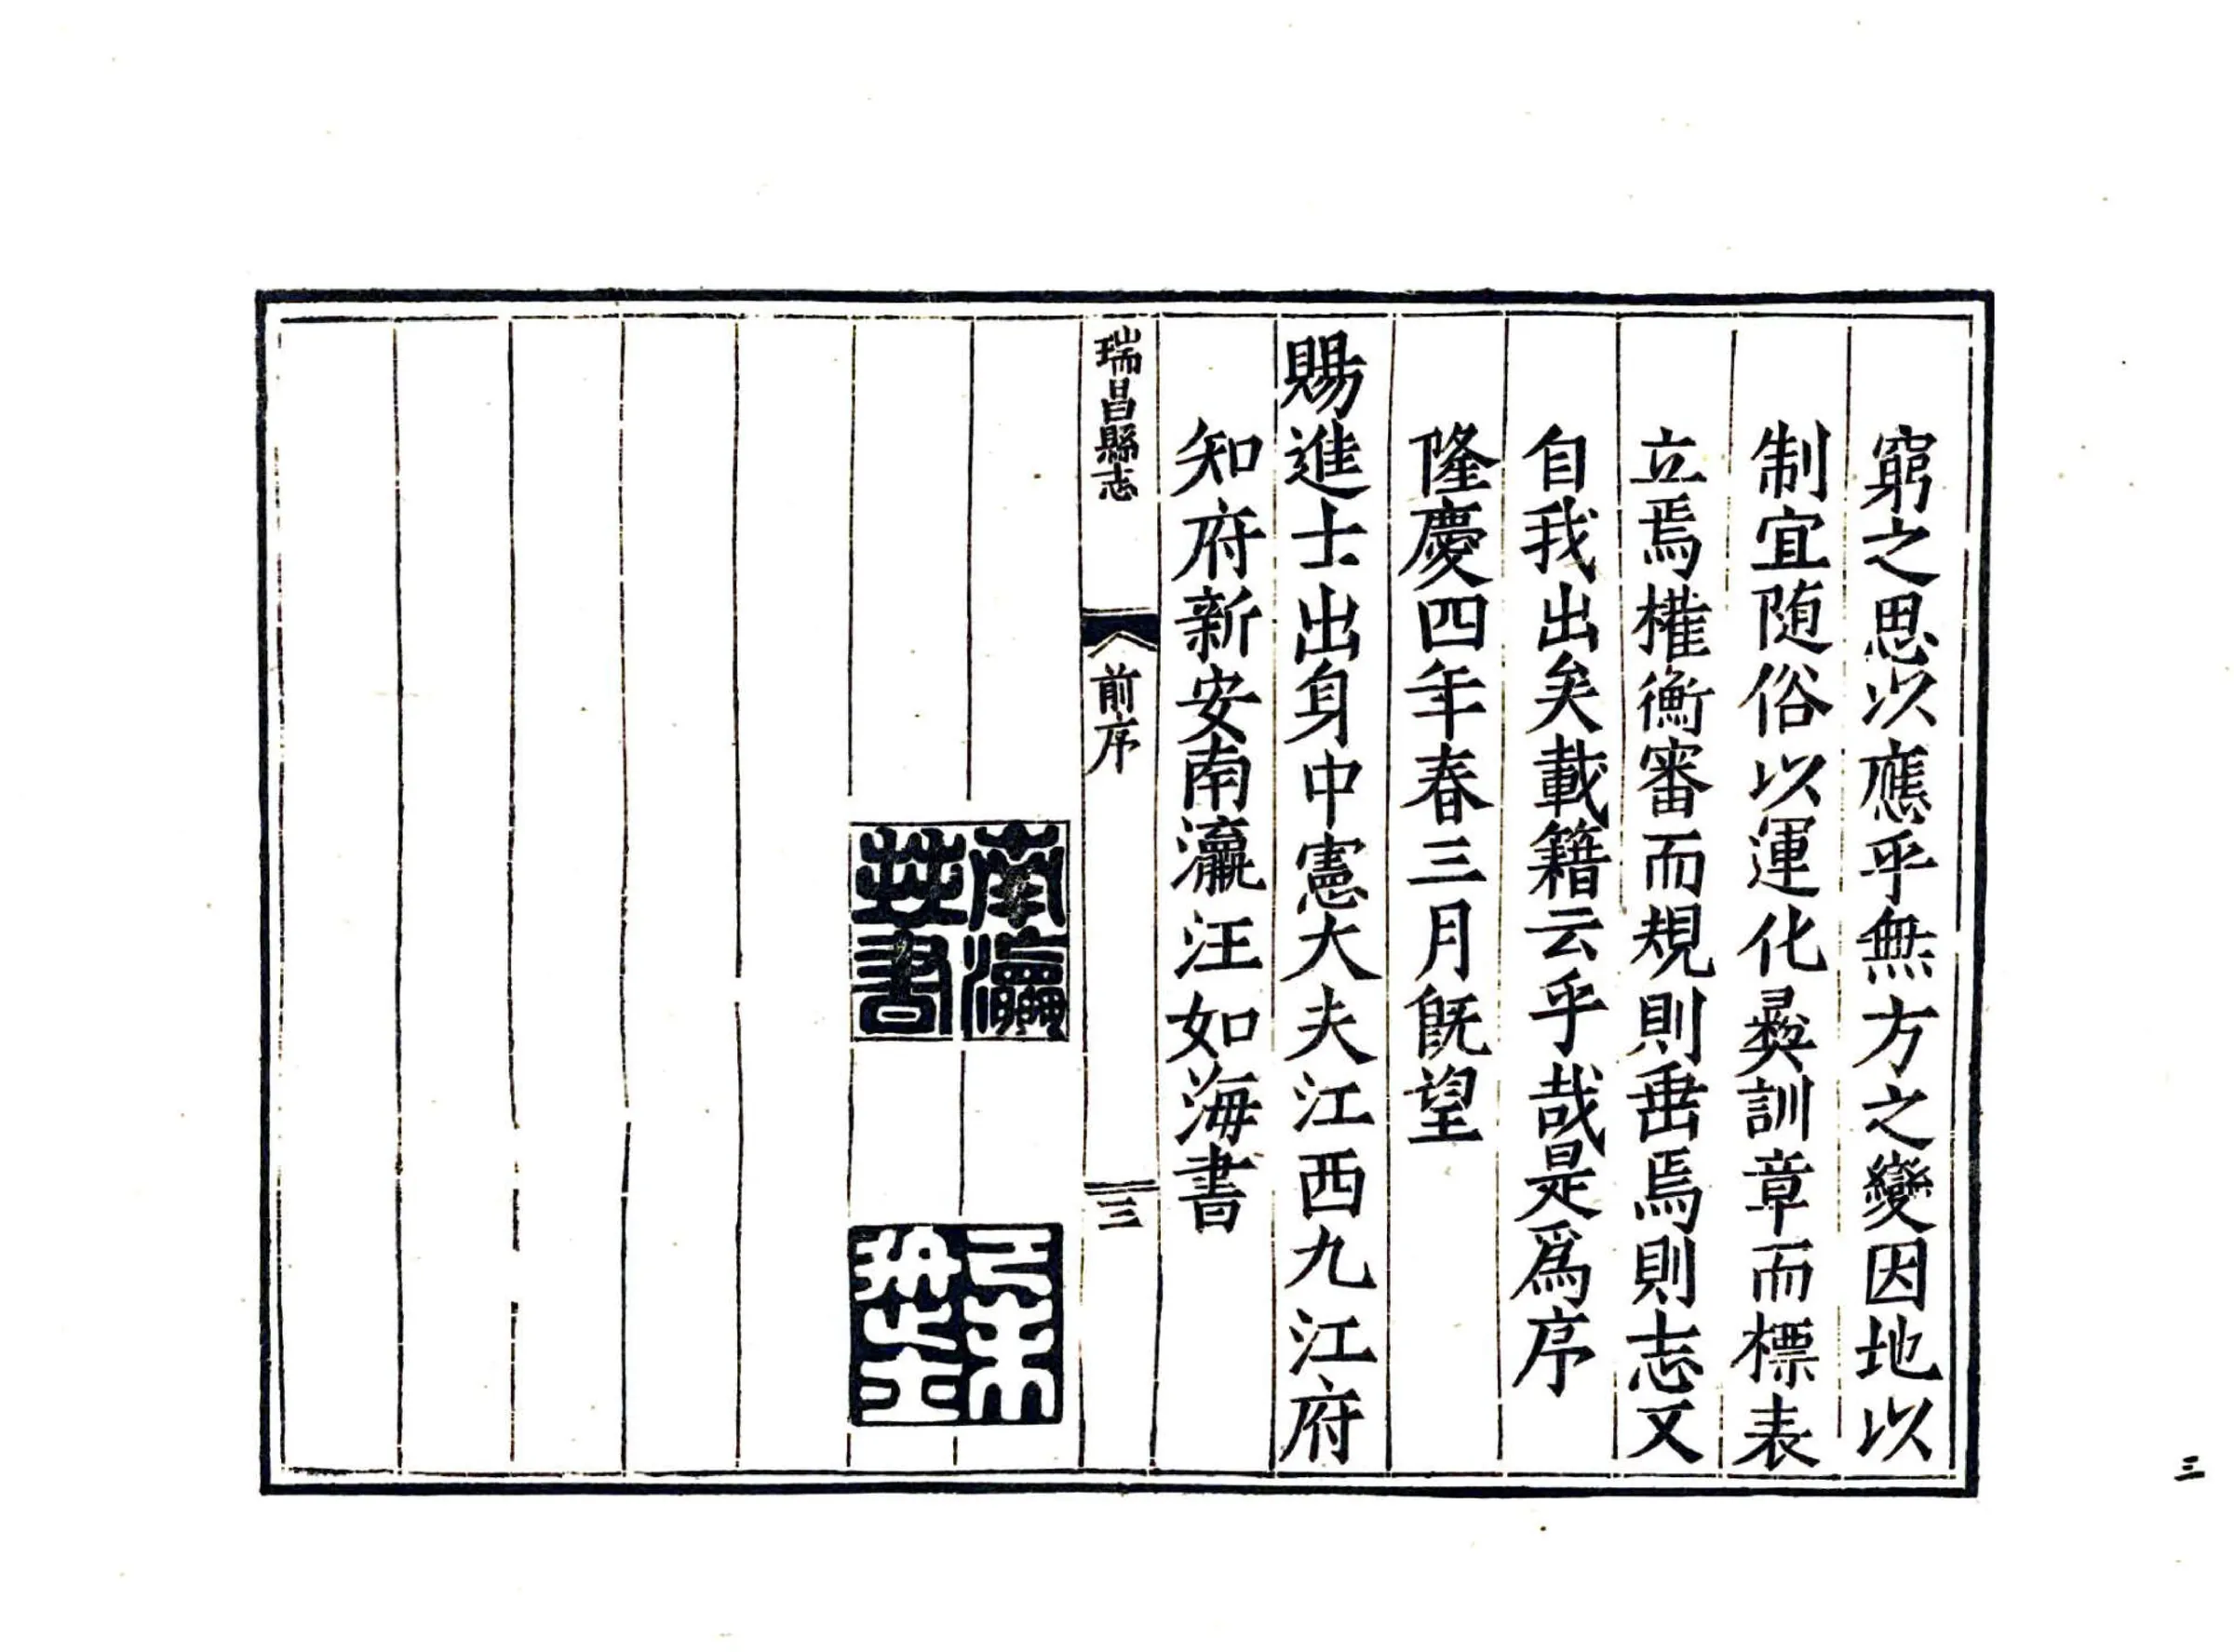 窮之思以應乎無方之變因地以
制宜随俗以運化彛訓章而標表
立焉權衡審而規則垂焉則志又
自我出矣載籍云乎哉是爲序
隆慶四年春三月旣望
賜進士出身中憲大夫江西九江府
知府新安南瀛汪如海書
瑞昌縣志
前序
三
南瀛
世書
己未
進士
三